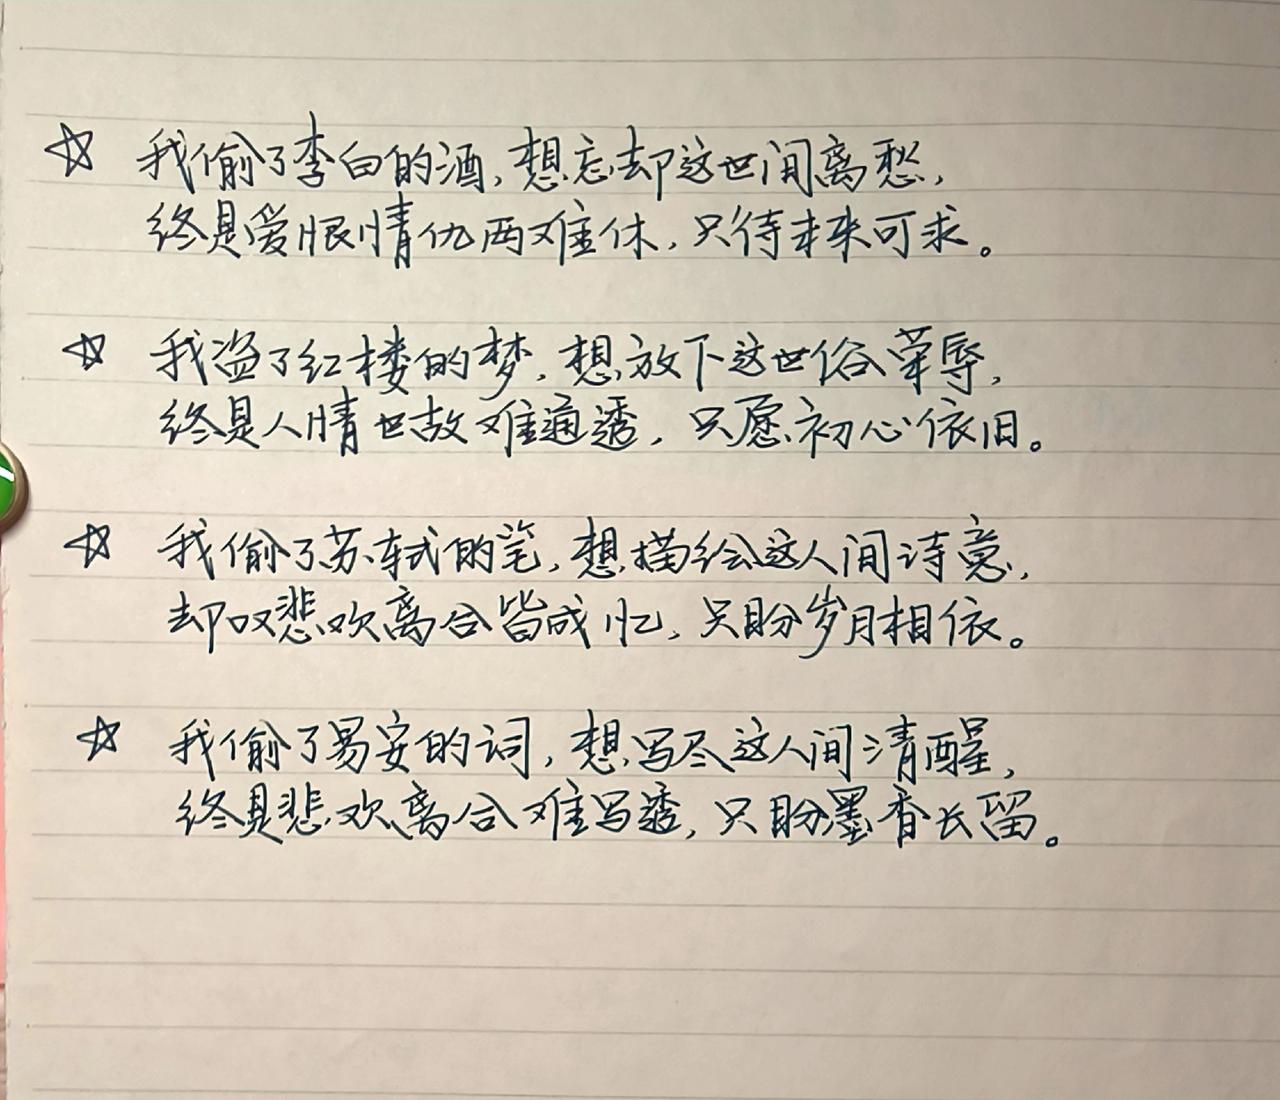 ☆ 我偷了李白的酒，想忘却这世间离愁，
终是爱恨情仇两难休，只待未来可求。
☆ 我盗了红楼的梦，想放下这世俗荣辱，
终是人情世故难通透，只愿初心依旧。
☆ 我偷了苏轼的笔，想描绘这人间诗意，
却叹悲欢离合皆成忆，只盼岁月相依。
☆ 我偷了易安的词，想写尽这人间清醒，
终是悲欢离合难写透，只盼墨香长留。